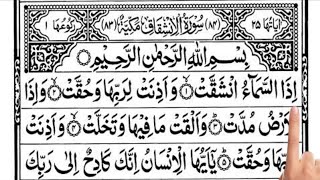 اٰيَاتُهَا ٢٥ (٨٤) سُوْرَةُ الْاِنْشِقَاقِ مَكِّيَّةٌ (٨٣) رُكُوْعُهَا ١
بِسْمِ اللّٰهِ الرَّحْمٰنِ الرَّحِيْمِ
اِذَا السَّمَآءُ انْشَقَّتْ ۙ﴿١﴾ وَاَذِنَتْ لِرَبِّهَا وَحُقَّتْ ۙ﴿٢﴾ وَاِذَا
لْاَرْضُ مُدَّتْ ۙ﴿٣﴾ وَاَلْقَتْ مَا فِيْهَا وَتَخَلَّتْ ۙ﴿٤﴾ وَاَذِنَتْ
بِّهَا وَحُقَّتْ ؕ﴿٥﴾ يٰۤاَيُّهَا الْاِنْسَانُ اِنَّكَ كَادِحٌ اِلٰى رَبِّكَ